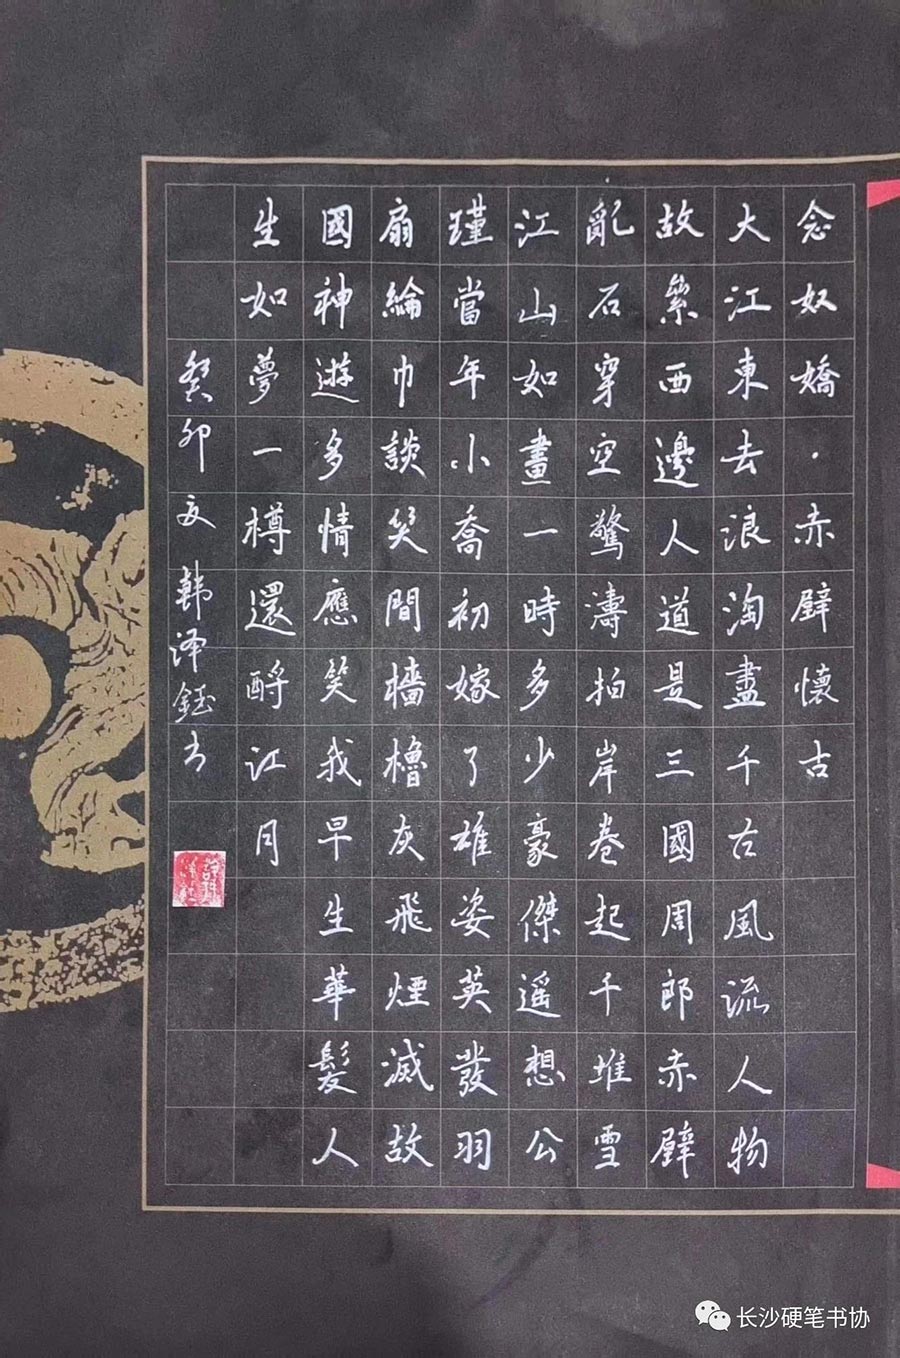 念奴嬌·赤壁懷古
大江東去浪淘盡千古風流人物
故纍西邊人道是三國周郎赤壁
亂石穿空驚濤拍岸卷起千堆雪
江山如畫一時多少豪傑遥想公
瑾當年小喬初嫁了雄姿英發羽
扇綸巾談笑間檣櫓灰飛煙滅故
國神遊多情應笑我早生華髮人
生如夢一樽還酹江月
癸卯夏韩泽鈺书
长沙硬笔书协